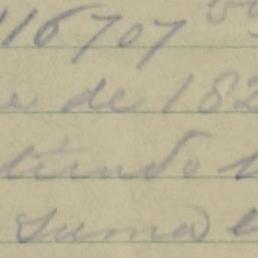 116707
de 182
tiendo
suma e